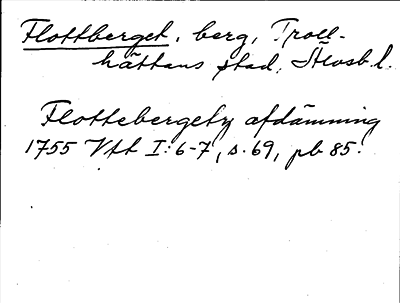 Flottberget, berg, Troll-
hättans stad, Älvsb. l.
Flottebergetz afdämning
1755 Vtt I: 6-7, s. 69, pb 85.